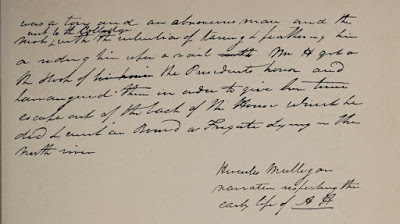 was a tory and an obnoxious man and the
went to the College
Mob with the intention of taring & feathering him
or riding him upon a rail Mr H got on
the stoop of his house the Presidents house and
harrangued them in order to give him time
escape out of the back of the House which he
did & went on Board a Frigate lying in the
north river
Hercules Mulligan
narrative respecting the
early life of A H